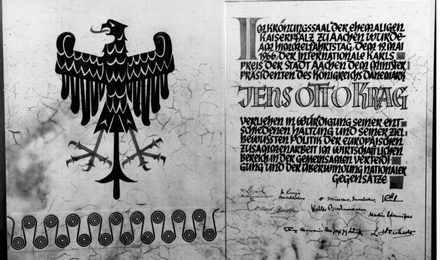 IM KRÖNUNGSSAAL DER EHEMALIGEN
KAISERPFALZ ZU AACHEN WURDE
AM HIMMELFAHRTSTAG DEM 19. MAI
1966 DER INTERNATIONALE KARLS
PREIS DER STADT AACHEN DEM MINISTER
PRÄSIDENTEN DES KÖNIGREICHS DÄNEMARK
JENS OTTO KRAG
VERLIEHEN IN WÜRDIGUNG SEINER ENT
SCHIEDENEN HALTUNG UND SEINER ZIEL
BEWUSSTEN POLITIK DER EUROPÄISCHEN
ZUSAMMENARBEIT IM WIRTSCHAFTLICHEN
BEREICH IN DER GEMEINSAMEN VERTEIDI
GUNG UND DER ÜBERWINDUNG NATIONALER
GEGENSÄTZE